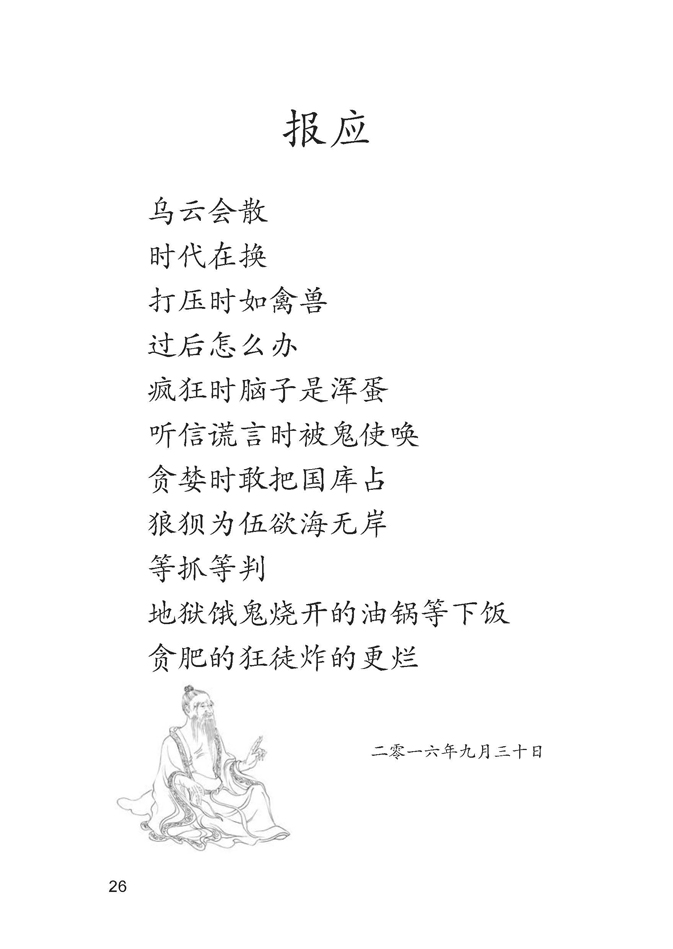 报应
乌云会散
时代在换
打压时如禽兽
过后怎么办
疯狂时脑子是浑蛋
听信谎言时被鬼使唤
贪婪时敢把国库占
狼狈为伍欲海无岸
等抓等判
地狱饿鬼烧开的油锅等下饭
贪肥的狂徒炸的更烂
二零一六年九月三十日
26